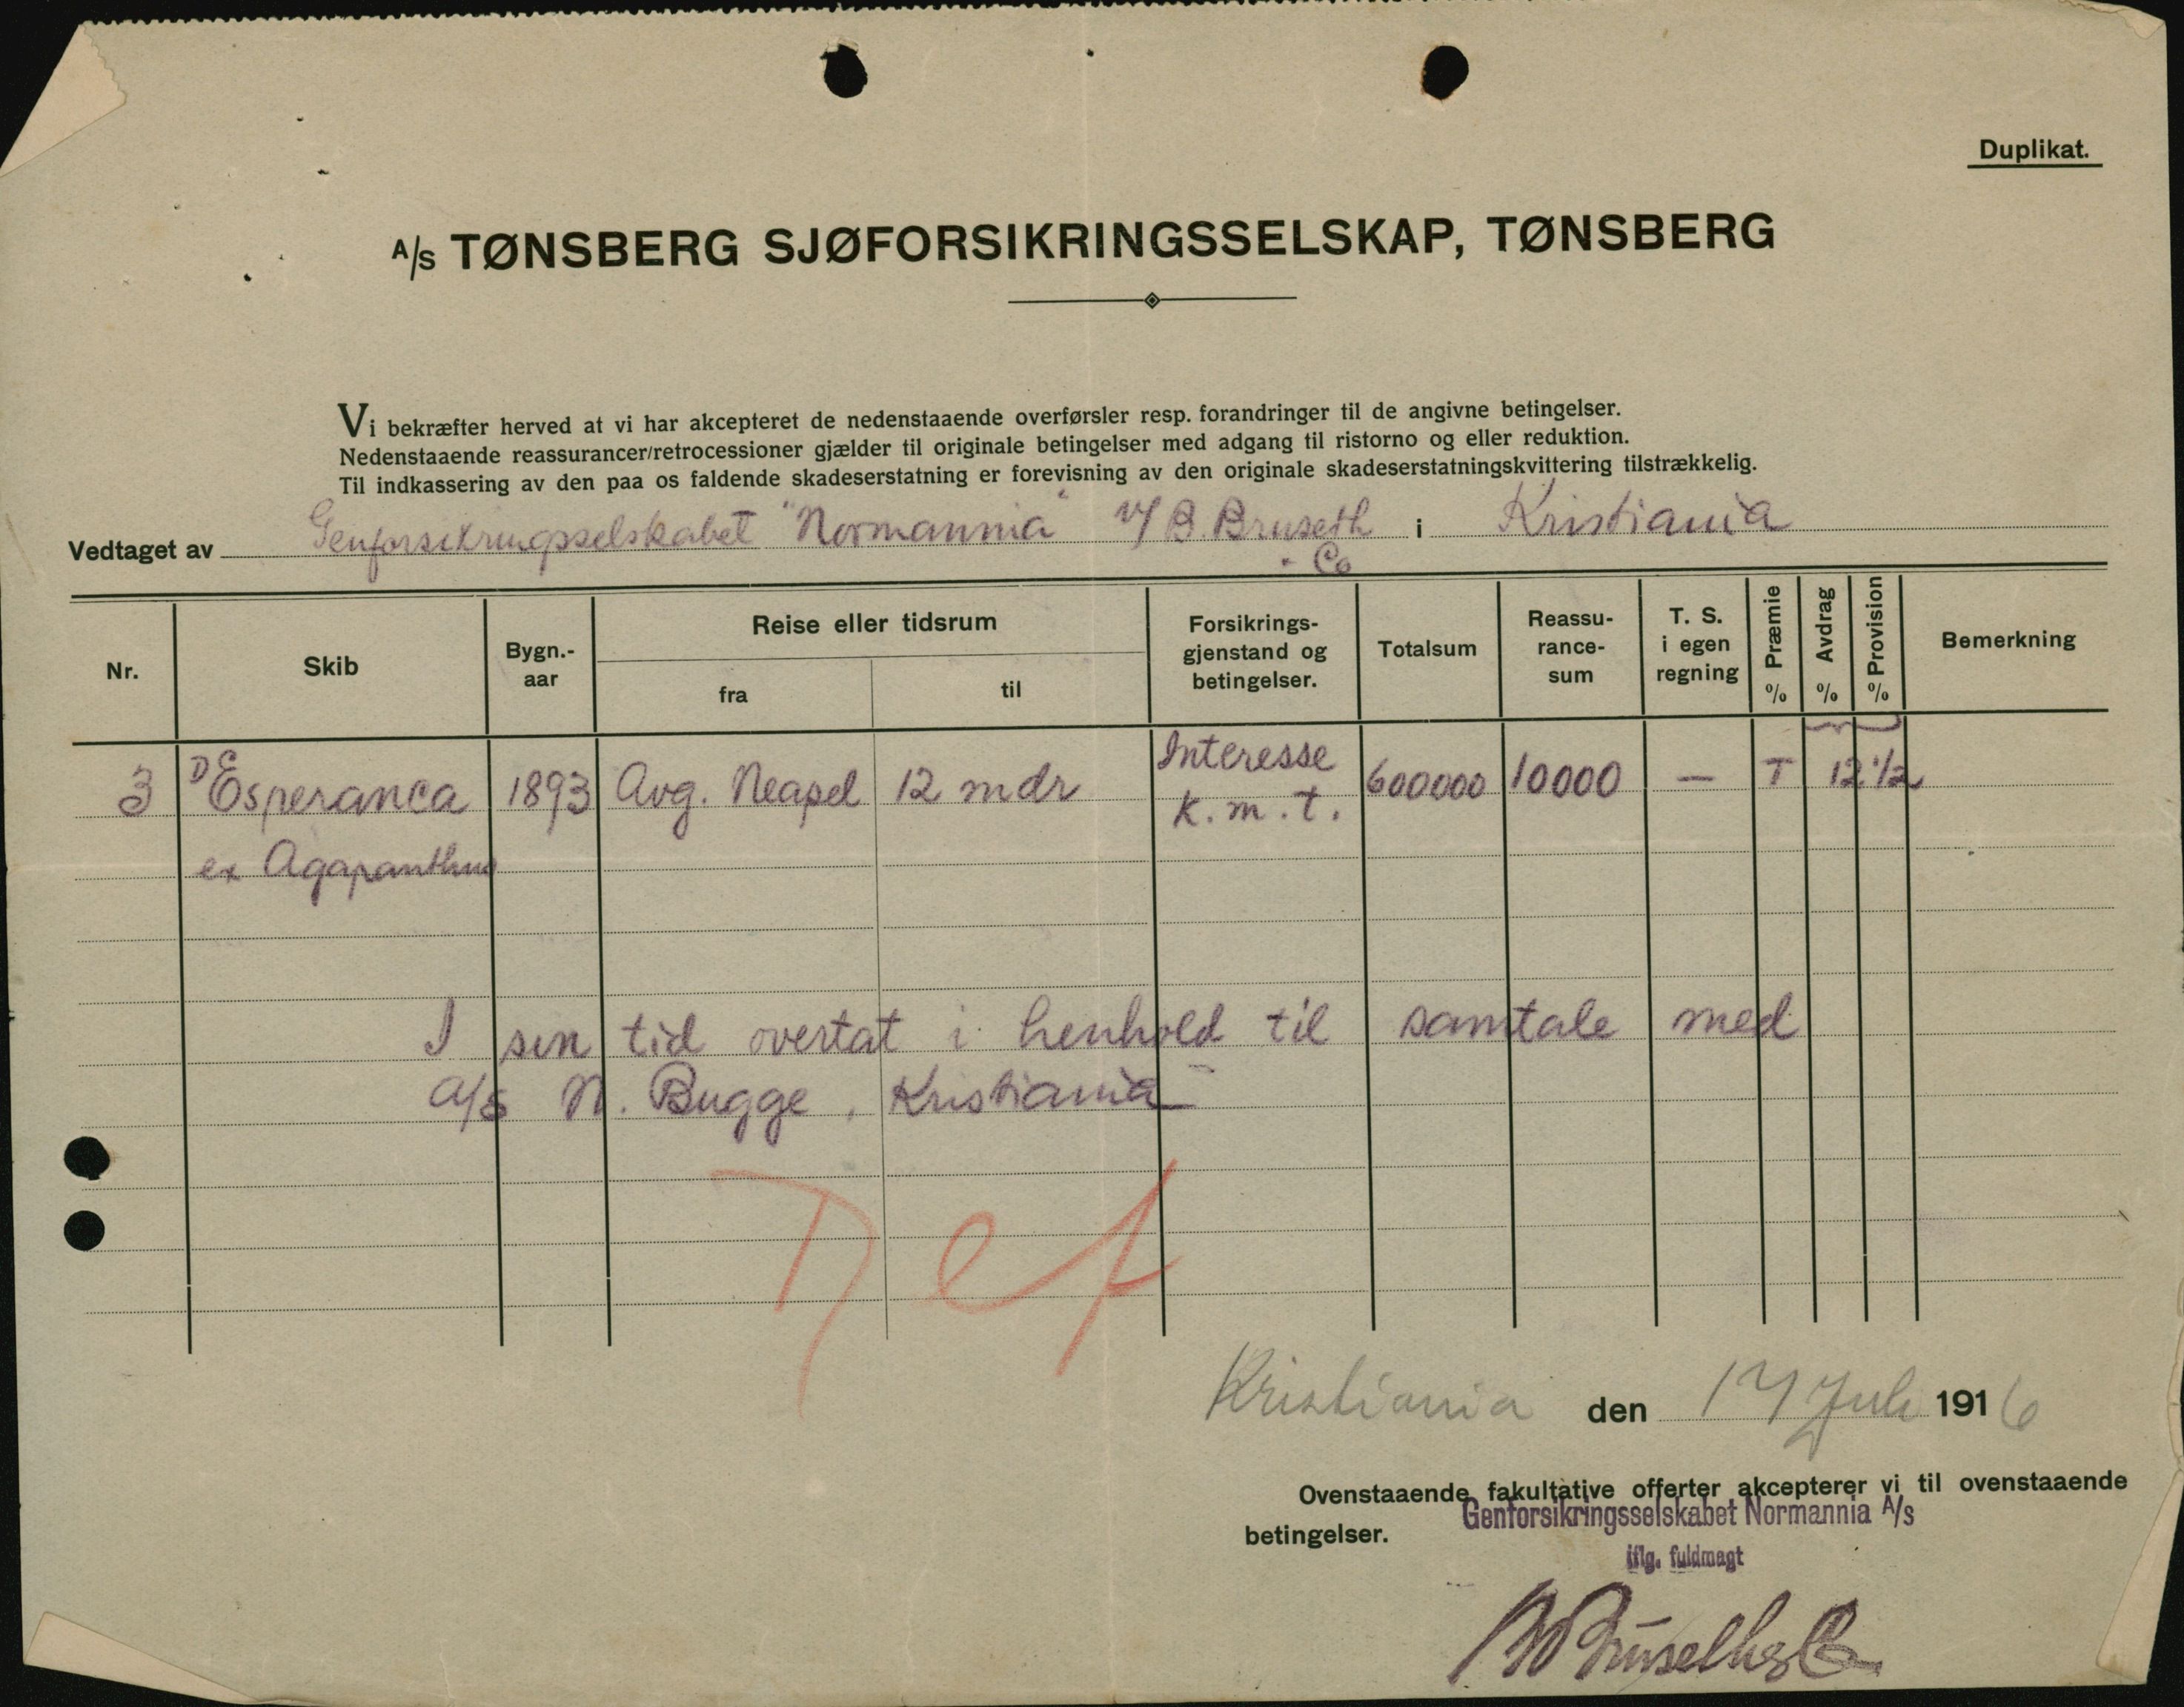 Duplikat.
A/S TØNSBERG SJØFORSIKRINGSSELSKAP, TØNSBERG
Vi bekræfter herved at vi har akcepteret de nedenstaaende overførsler resp. forandringer til de angivne betingelser.
Nedenstaaende reassurancer/retrocessioner gjælder til originale betingelser med adgang til ristorno og eller reduktion.
Til indkassering av den paa os faldende skadeserstatning er forevisning av den originale skadeserstatningskvittering tilstrækkelig.
Vedtaget av Genforsikringsselskabet "Normannia" v/ B. Bruseth i Kristiania
- Co
Nr. Skib Bygn.-aar Reise eller tidsrum fra til Forsikrings-gjenstand og betingelser. Totalsum Reassu-rance-sum T. S. i egen regning Præmie % Avdrag % Provision % Bemerkning
3 DS Esperanca 1893 Avg. Neapel 12 mdr Interesse k.m.t. 600000 10000 — T 12 1/2
ex Agapanthus
I sin tid overtat i henhold til samtale med
A/S N. Bugge, Kristiania
Def
Kristiania den 17 Juli 1916
Ovenstaaende fakultative offerter akcepterer vi til ovenstaaende
betingelser.
Genforsikringsselskabet Normannia A/S
iflg. fuldmagt
B Bruseth & Co